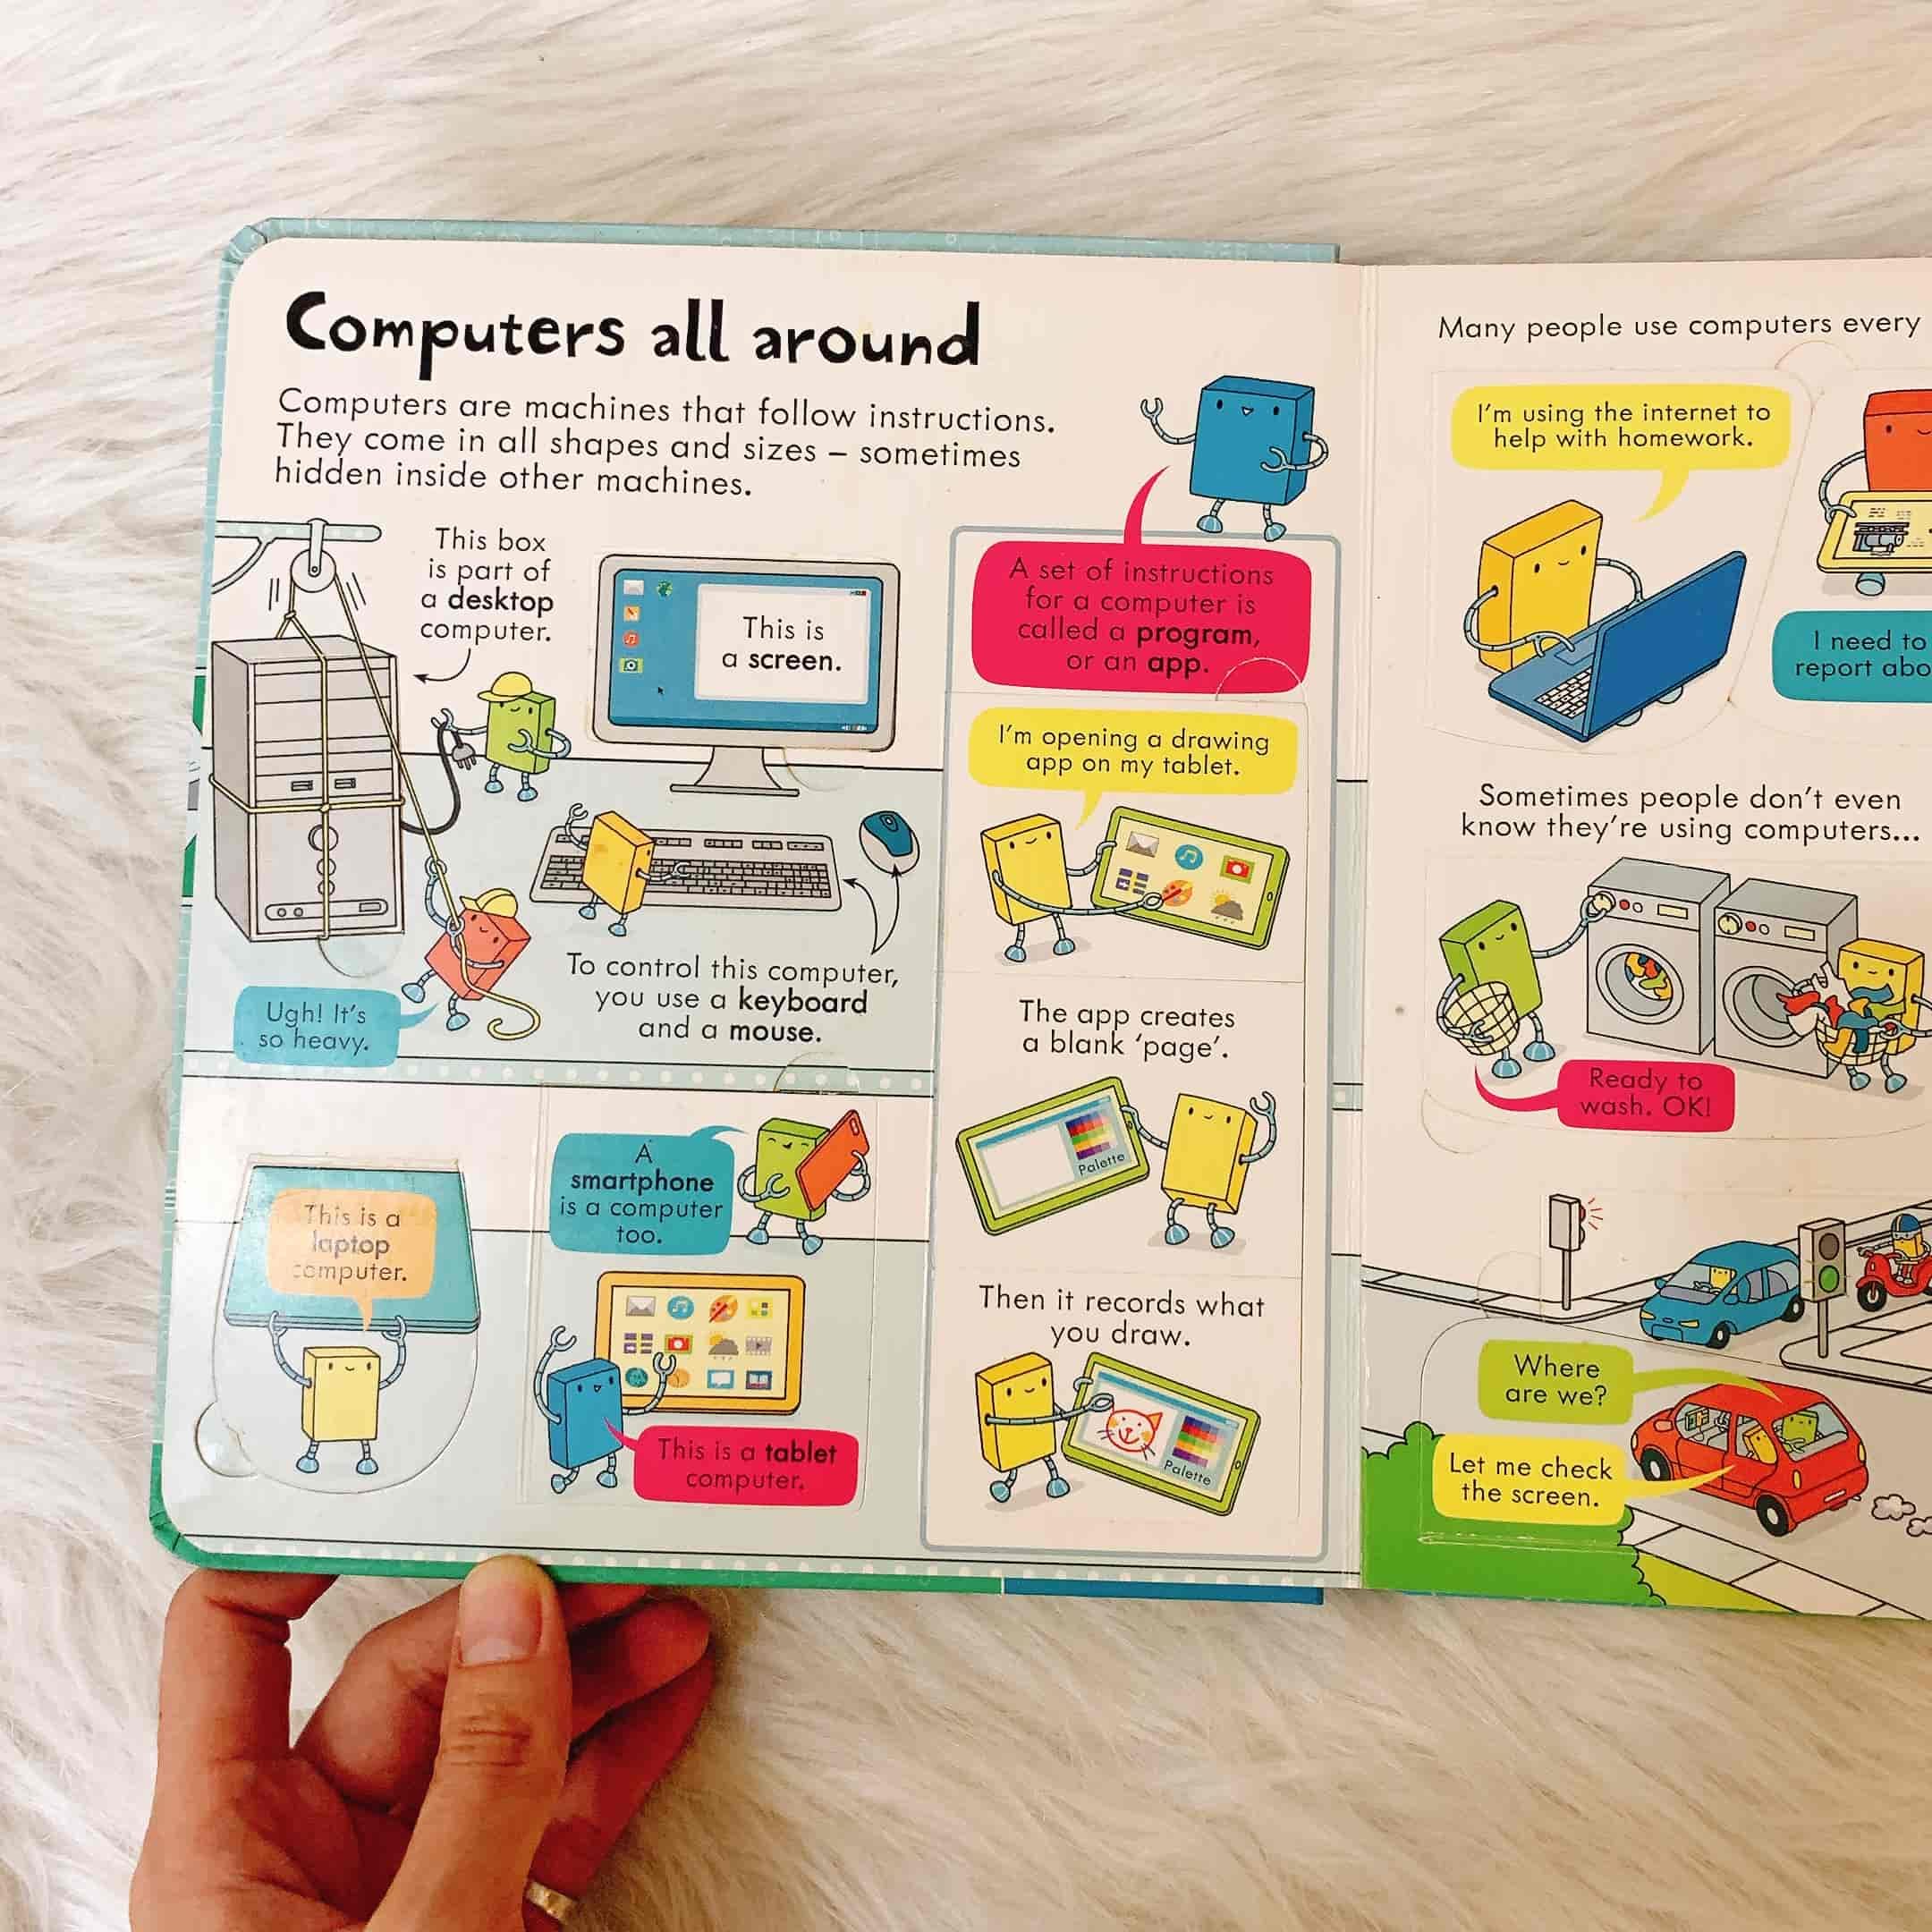 Computers all around
Computers are machines that follow instructions.
They come in all shapes and sizes – sometimes
hidden inside other machines.
This box
is part of
a desktop
computer.
This is
a screen.
Ugh! It's
so heavy.
To control this computer,
you use a keyboard
and a mouse.
This is a
laptop
computer.
A
smartphone
is a computer
too.
This is a tablet
computer.
A set of instructions
for a computer is
called a program,
or an app.
I'm opening a drawing
app on my tablet.
The app creates
a blank 'page'.
Palette
Then it records what
you draw.
Palette
Many people use computers every
I'm using the internet to
help with homework.
I need to
report
Sometimes people don't even
know they're using computers...
Ready to
wash. OK!
Where
are we?
Let me check
the screen.